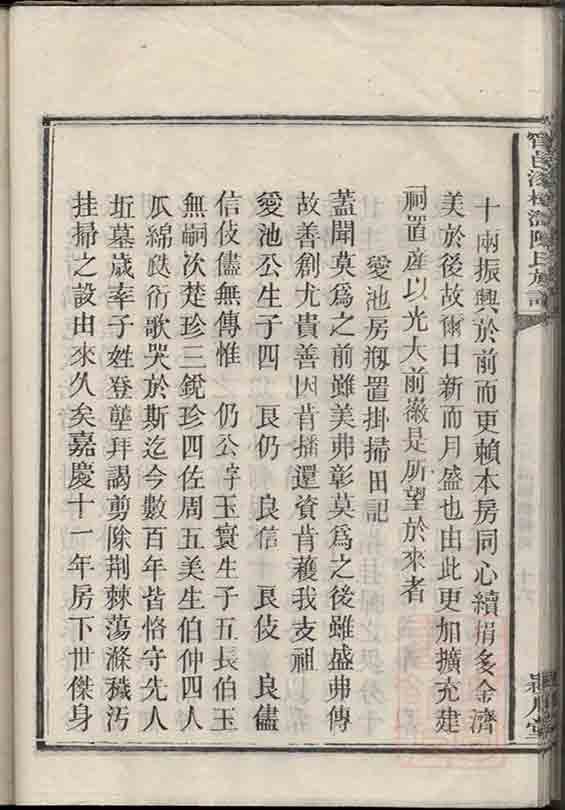 十兩振興於前而更賴本房同心續捐多金濟
美於後故爾日新而月盛也由此更加擴充建
祠置產以光大前徽是所望於來者
愛池房剏置掛掃田記
蓋聞莫爲之前雖美弗彰莫爲之後雖盛弗傳
故善創尤貴善因肯播還資肯穫我支祖
愛池公生子四 良仍 良信 良伎 良儘
信伎儘無傳惟 仍公字玉寰生子五長伯玉
無嗣次楚珍三銳珍四佐周五美生伯仲四人
瓜綿瓞衍歌哭於斯迄今數百年皆恪守先人
坵墓歲率子姓登壟拜謁剪除荆棘蕩滌穢汚
挂掃之設由來久矣嘉慶十一年房下世傑身